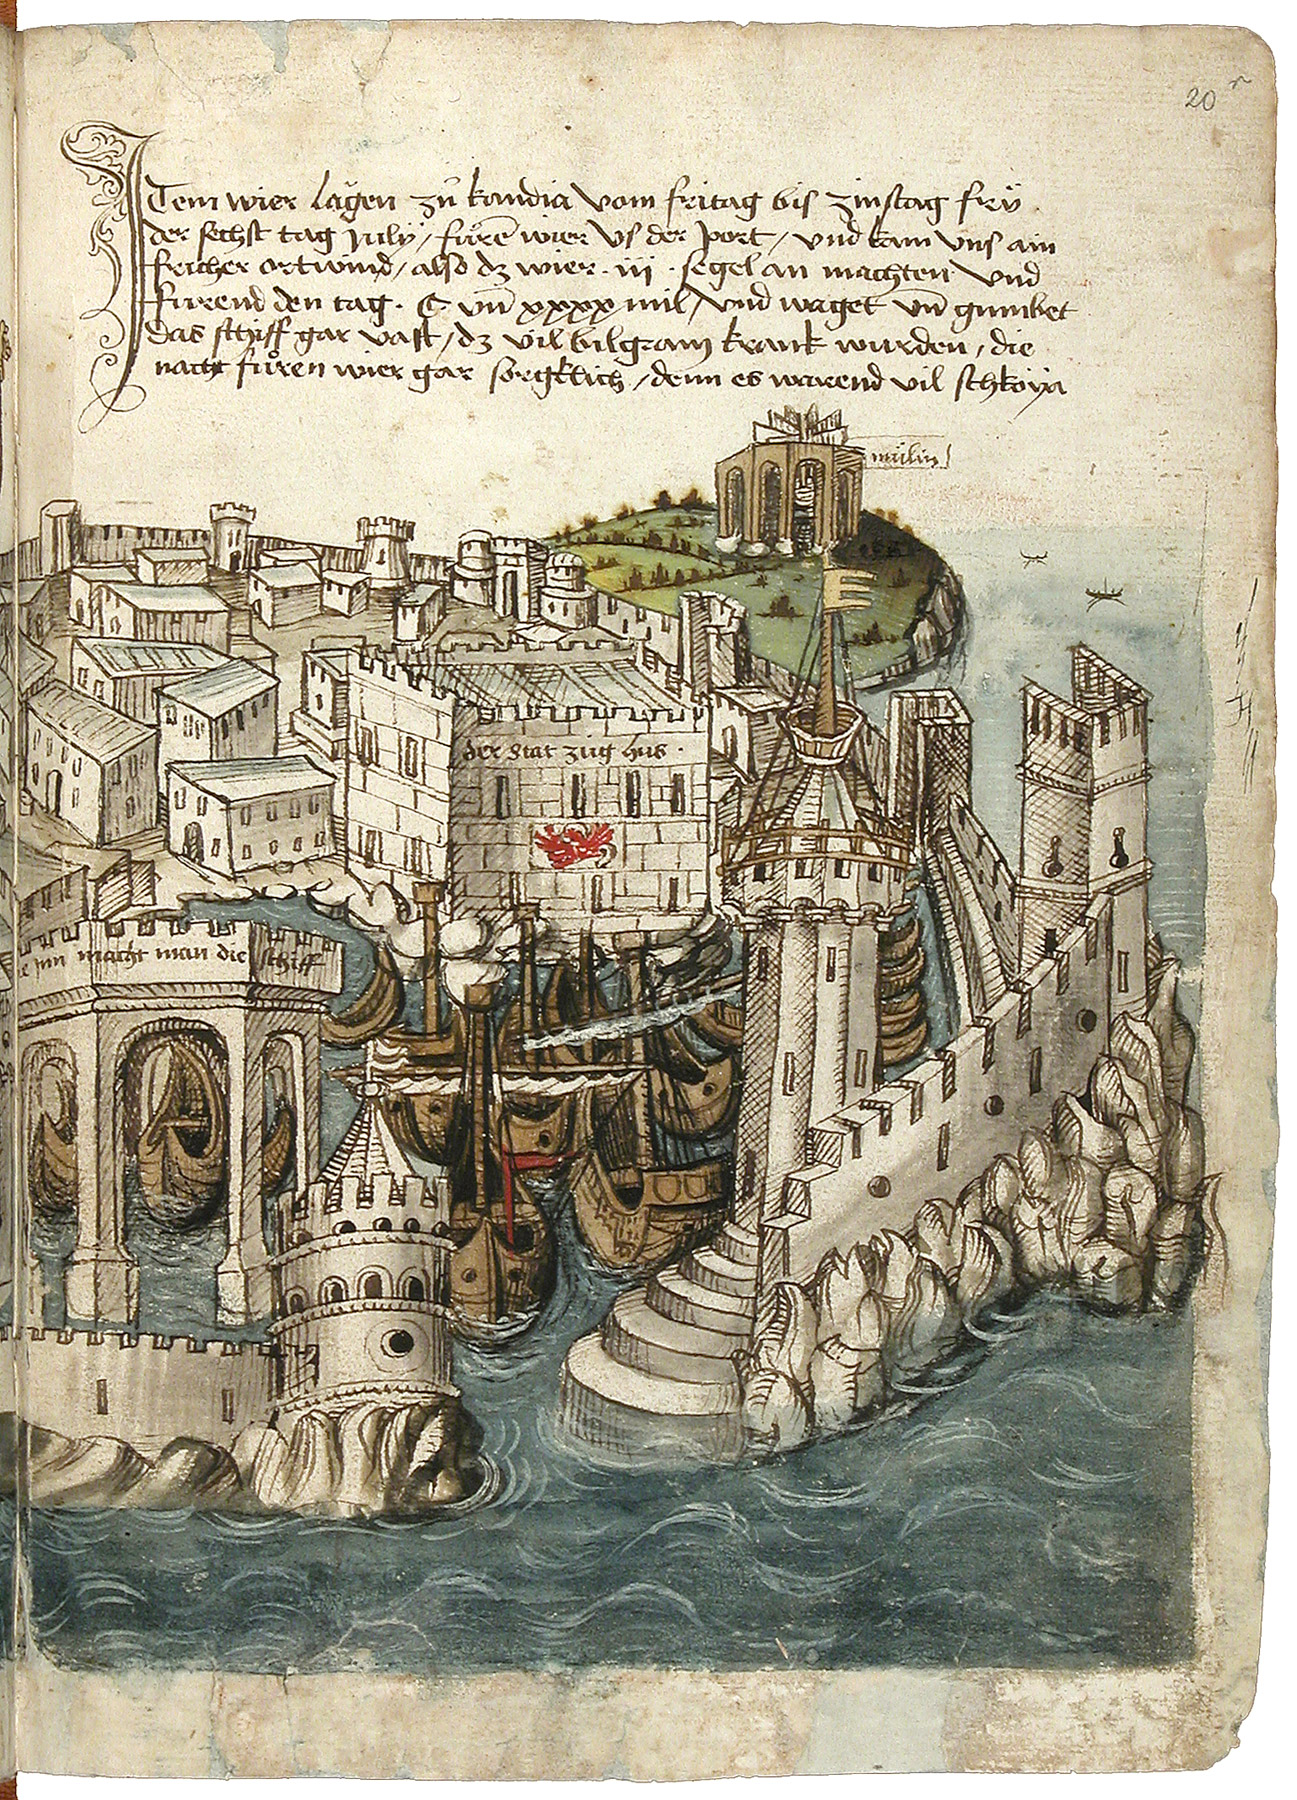 20 r
Item wier lägen zů kandia vom fritag bis zinstag frü
der sechst tag Julÿ / fůrē wier vs der port / vnd kam vns ain
frischer ortwind / also dz wier · iij · segel an machten vnd
furend den tag · C · vn̄ xxxx mil / vnd waget vn̄ gumbet
das schiff gar vast / dz vil bilgram krank wurden / die
nacht fůren wier gar sorgklich / denn es warend vil schkoÿa
mülin
der stat züg hus ·
inn macht man die schiff